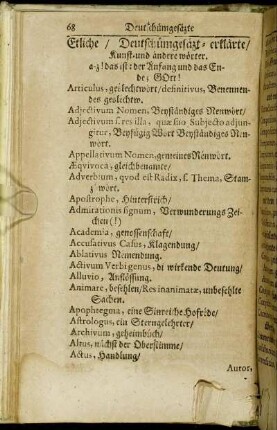 68 Deutschümgesäzte
Etliche / Deutschümgesäzt-erklärte/
Kunst-und andere wörter.
a-z! das ist: der Anfang und das En-
de, GOtt!
Articulus, geslechtwort/definitivus, Benennen-
des geslechtw.
Adjectivum Nomen, Beyständiges Nenwort/
Adjectivum f. res illa, quæ suo Subjecto adjun-
gitur, Beyfügig Wort Beyständiges Nen-
wort.
Appellativum Nomen, gemeines Nenwort.
Æqvivoca, gleichbenamte/
Adverbium, qvod est Radix, f. Thema, Stam-
wort,
Apostrophe, Hinterstrich/
Admirationis signum, Verwunderungs Zei-
chen (!)
Academia, genossenschaft/
Accusativus Casus, Klagendung/
Ablativus Nemendung.
Activum Verbi genus, di wirkende Deutung/
Alluvio, Anflössung.
Animare, beseelen/Res inanimatæ, unbeseelte
Sachen.
Apophtegma, eine Sinreiche Hofrede/
Astrologus, ein Sterngelehrter/
Archivum, geheimbuch/
Altus, nächst der Oberstimme/
Actus, Handlung/
Autor,